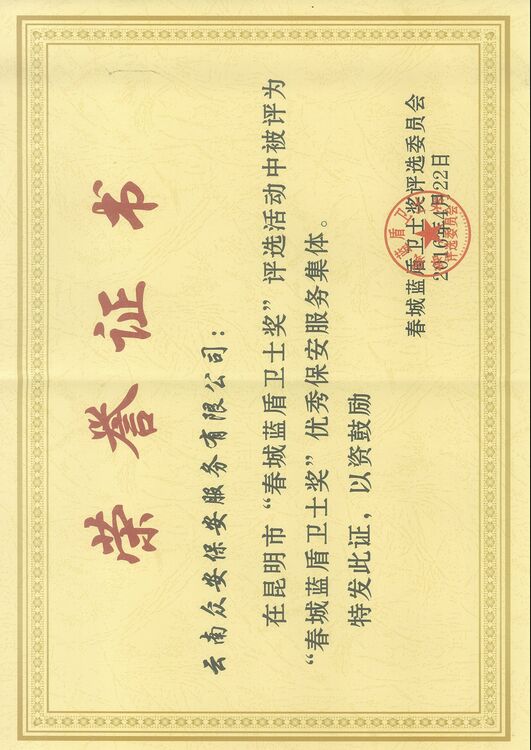 荣誉证书
云南众安保安服务有限公司：
在昆明市“春城蓝盾卫士奖”评选活动中被评为
“春城蓝盾卫士奖”优秀保安服务集体。
特发此证，以资鼓励
春城蓝盾卫士奖评选委员会
2016年4月22日
评选委员会